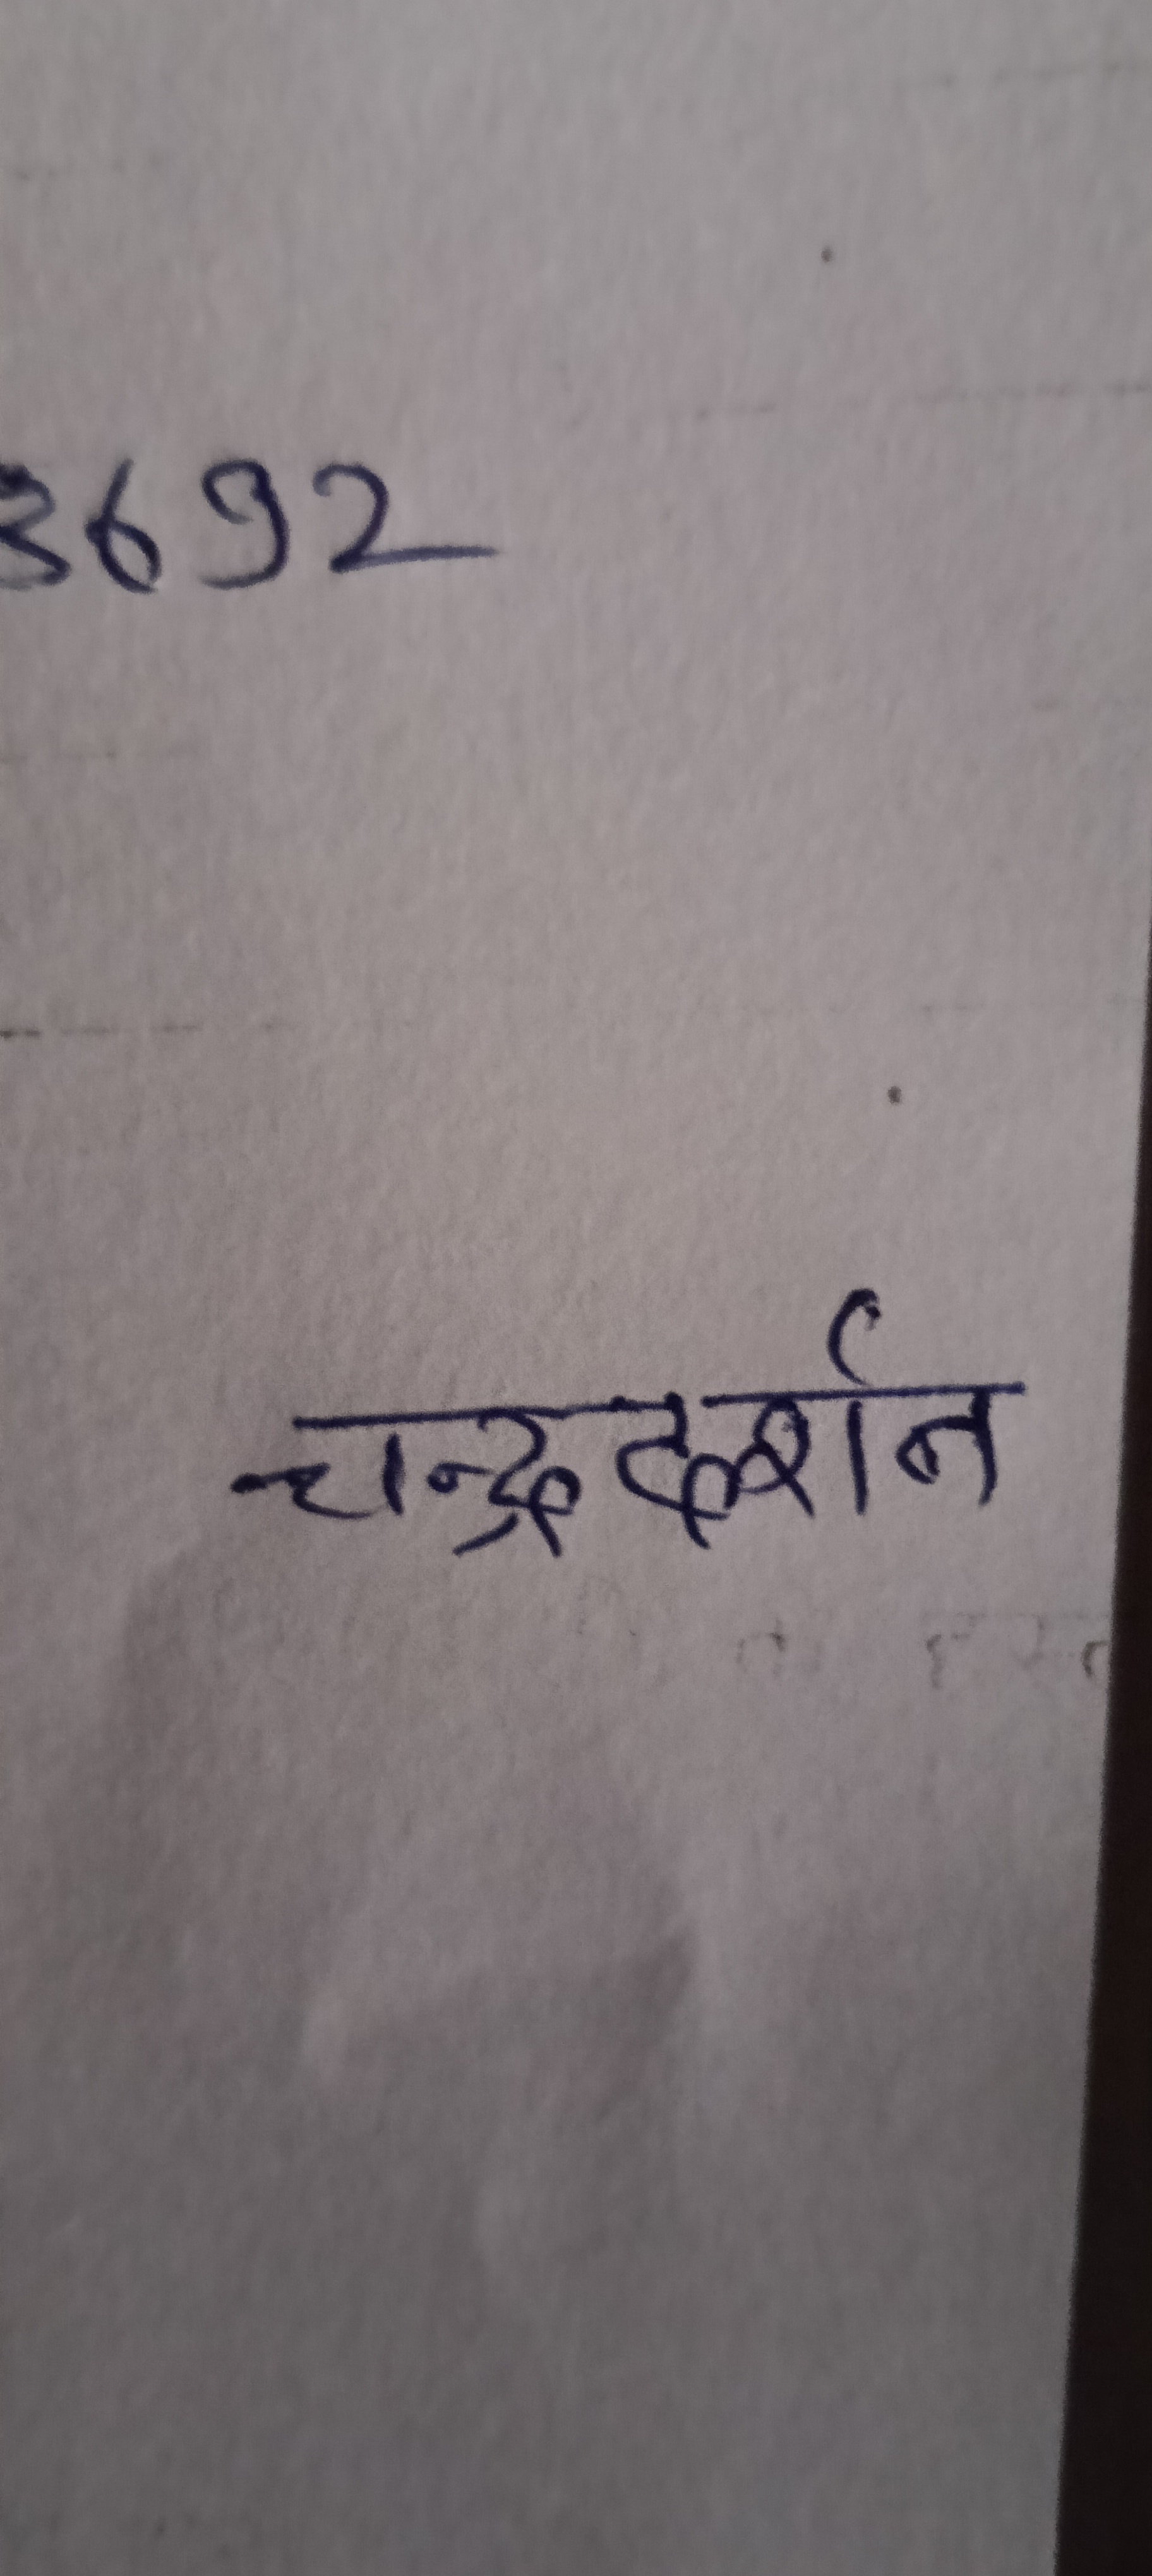 3692
चन्द्रदर्शन